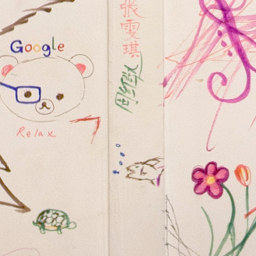 Google
Relax
張雯琪